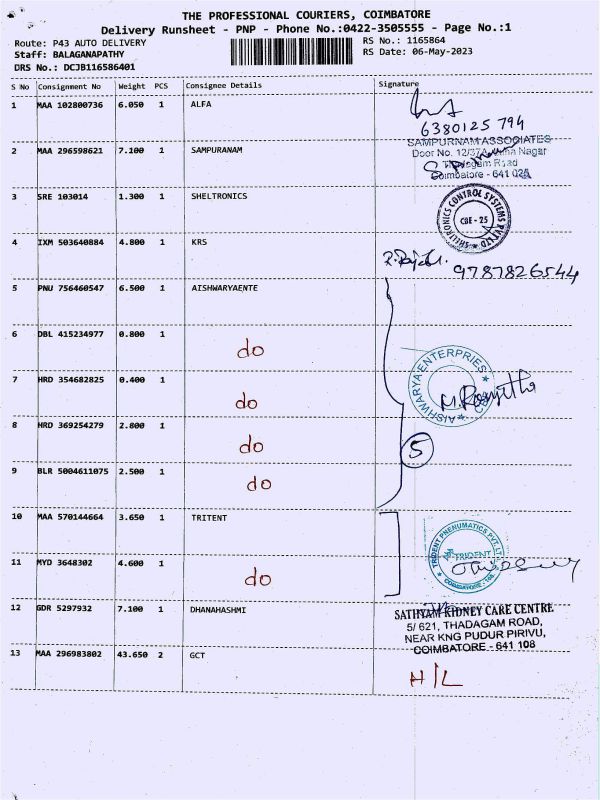 THE PROFESSIONAL COURIERS, COIMBATORE
Delivery Runsheet - PNP - Phone No.:0422-3505555 - Page No.:1
Route: P43 AUTO DELIVERY
Staff: BALAGANAPATHY
DRS No.: DCJB116586401
RS No.: 1165864
RS Date: 06-May-2023
S No Consignment No Weight PCS Consignee Details Signature
1 MAA 102800736 6.050 1 ALFA
6380125 794
2 MAA 296598621 7.100 1 SAMPURANAM
SAMPURNAM ASSOCIATES
Door No. 12/37A, Nagar
Thadagam Road
Coimbatore - 641 025
3 SRE 103014 1.300 1 SHELTRONICS
SHELTRONICS CONTROL SYSTEMS PVT LTD
CBE - 25
4 IXM 503640884 4.800 1 KRS
9787826544
5 PNU 756460547 6.500 1 AISHWARYAENTE
6 DBL 415234977 0.800 1
do
7 HRD 354682825 0.400 1
do
AISHWARYA ENTERPRIES
CBE
8 HRD 369254279 2.800 1
do
5
9 BLR 5004611075 2.500 1
do
10 MAA 570144664 3.650 1 TRITENT
TRIDENT PNEUMATICS PVT. LTD
TRIDENT
COIMBATORE
11 MYD 3648302 4.600 1
do
12 GDR 5297932 7.100 1 DHANAHASHMI
SATHYAM KIDNEY CARE CENTRE
5/ 621, THADAGAM ROAD,
NEAR KNG PUDUR PIRIVU,
COIMBATORE - 641 108
13 MAA 296983802 43.650 2 GCT
H/L